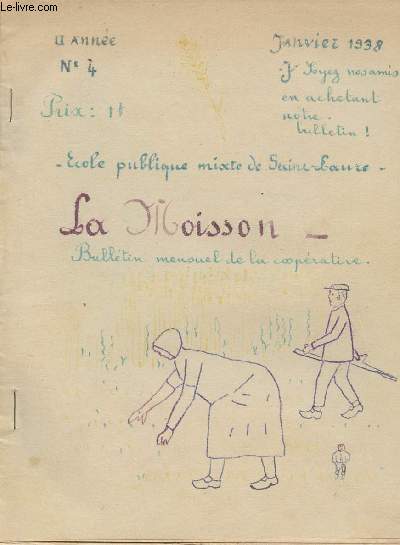 Le-livre.com
II ANNÉE
Janvier 1938
N° 4
Soyez nos amis
en achetant
Prix: 1f
notre
bulletin !
- Ecole publique mixte de Saint-Laure -
La Moisson -
Bulletin mensuel de la coopérative.